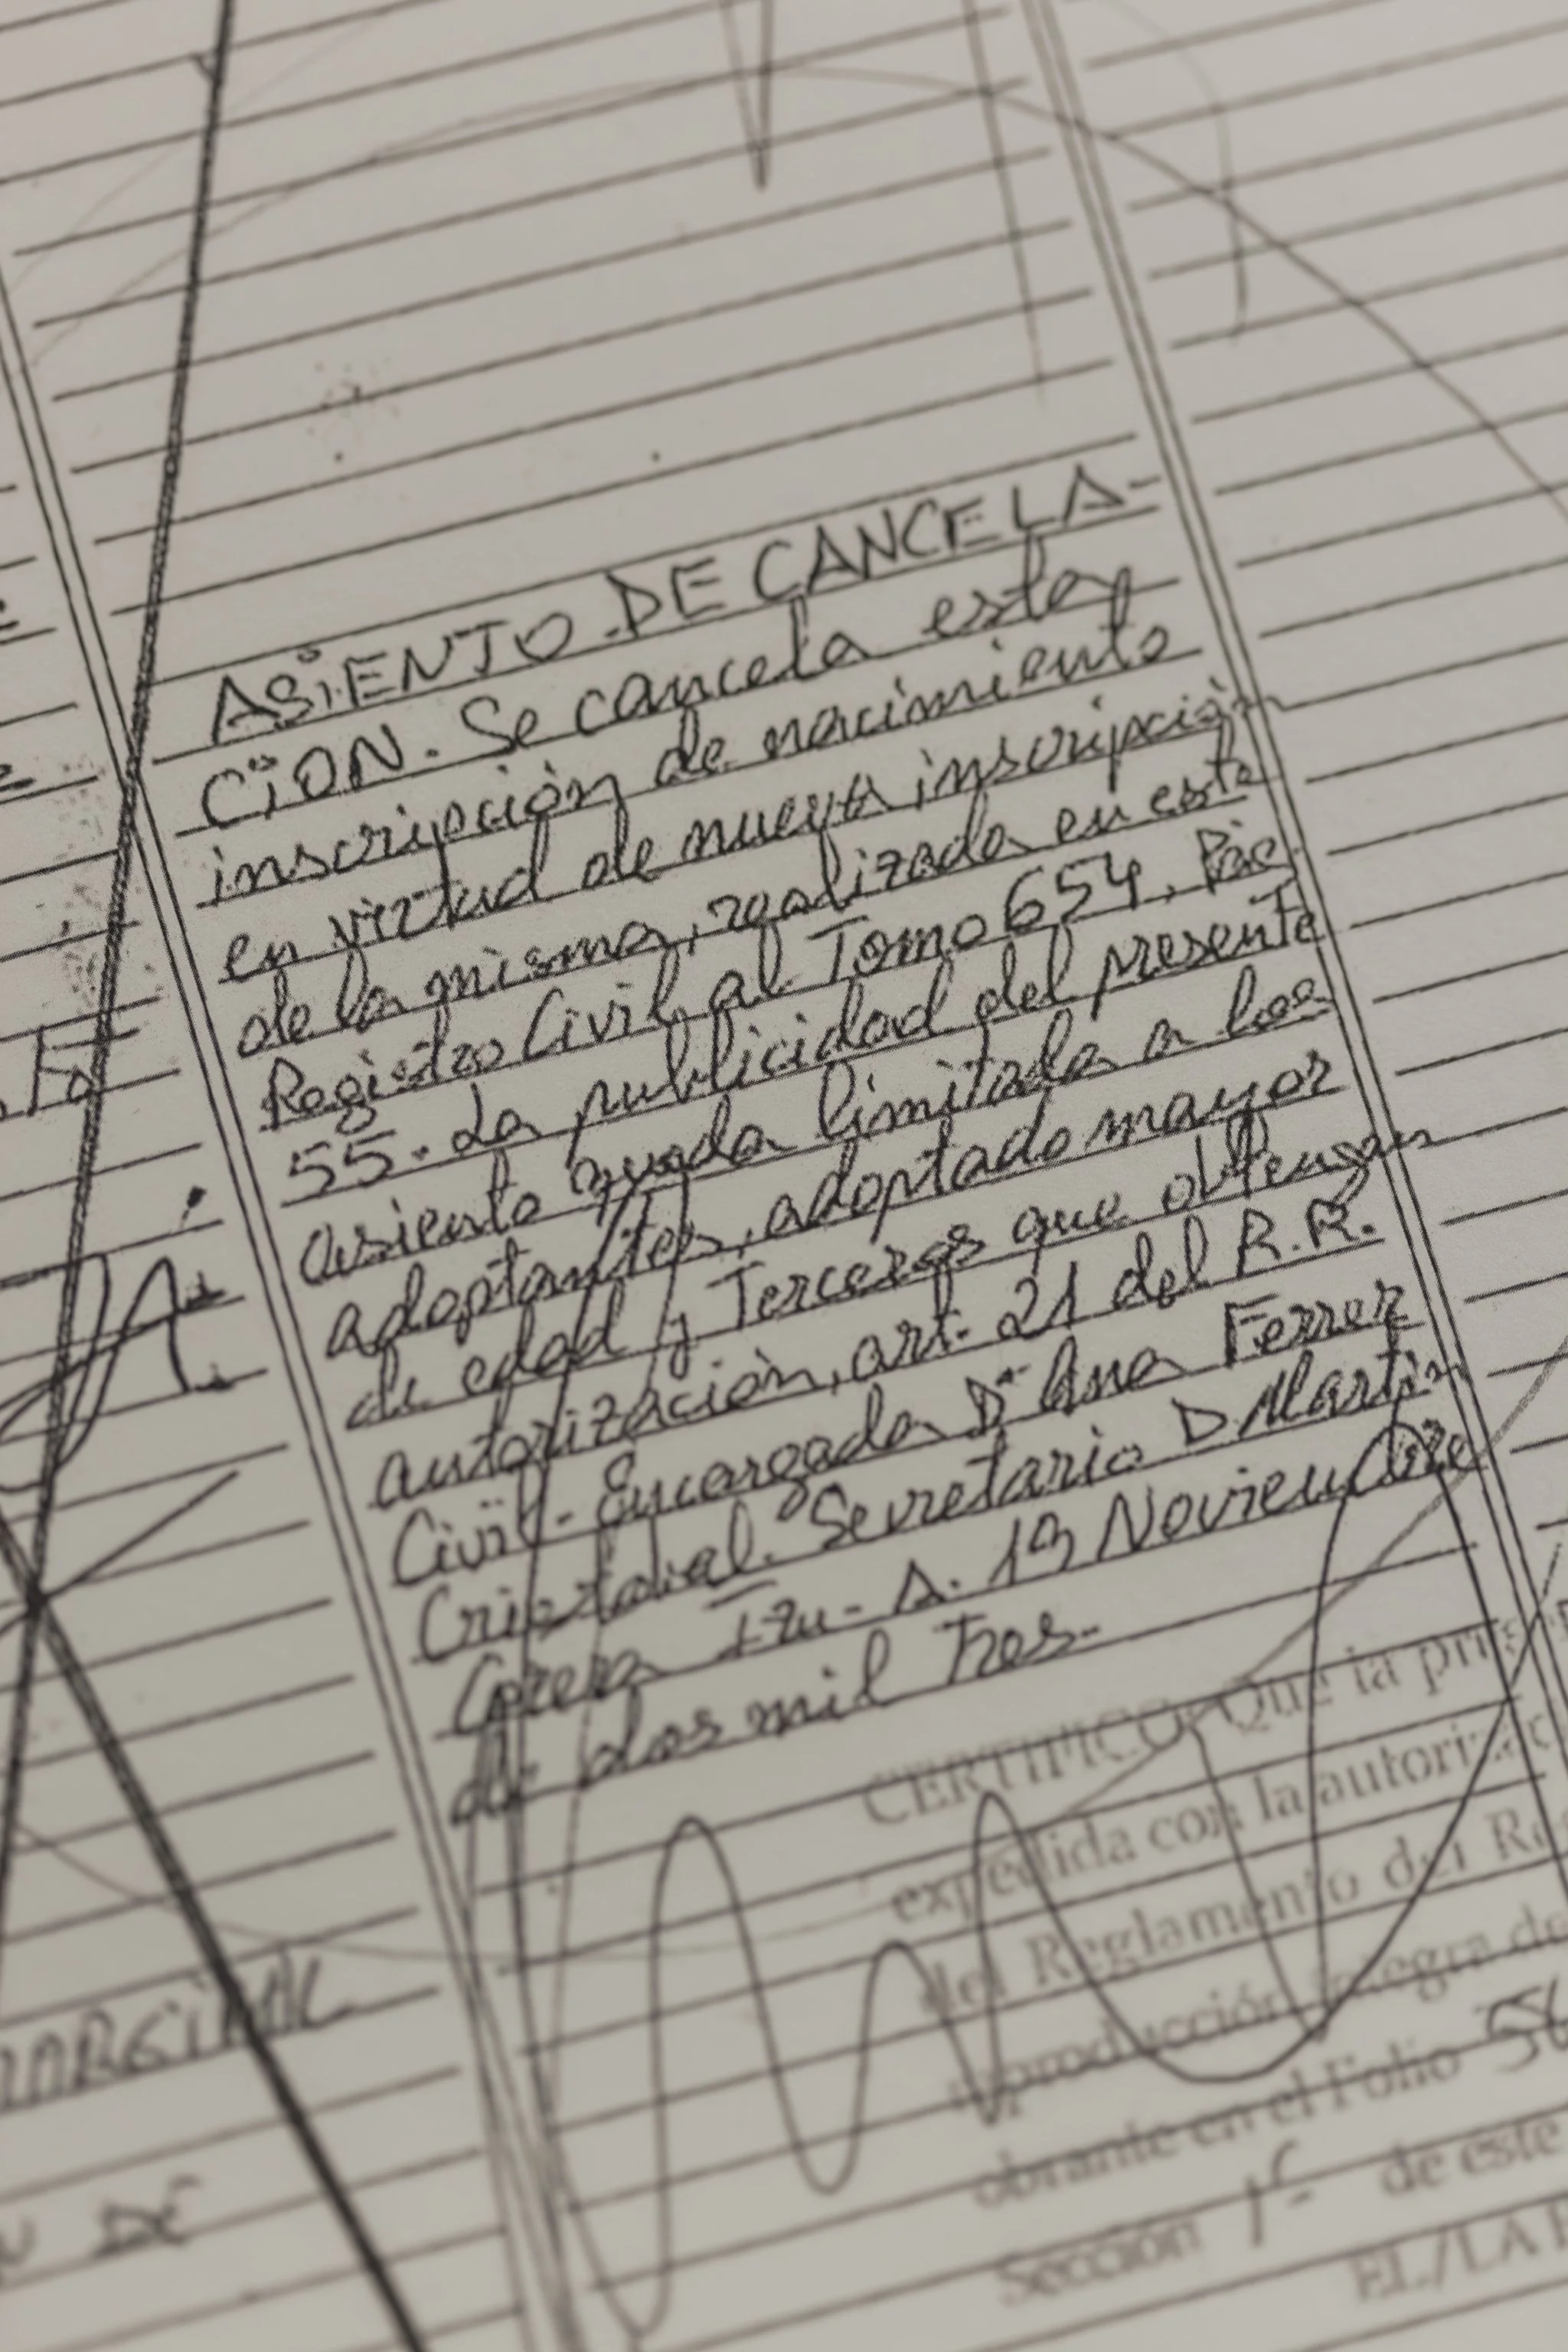 ASIENTO DE CANCELA-
CION. Se cancela esta
inscripción de nacimiento
en virtud de nueva inscripción
de la misma, realizada en este
Registro Civil, al Tomo 654, Pág
55. La publicidad del presente
asiento queda limitada a los
adoptantes, adoptado mayor
de edad y Terceros que obtengan
autorización, art. 21 del R.R.
Civil. Encargada Dª Ana Ferrer
Cristobal. Secretario D Martin
19 Noviembre
de dos mil Tres.
CERTIFICO: Que la
expedida con la
del Reglamento del
reproducción integra de
obrante en el Folio 56
Sección 1ª de este
EL/LA
MARGINAL
DE